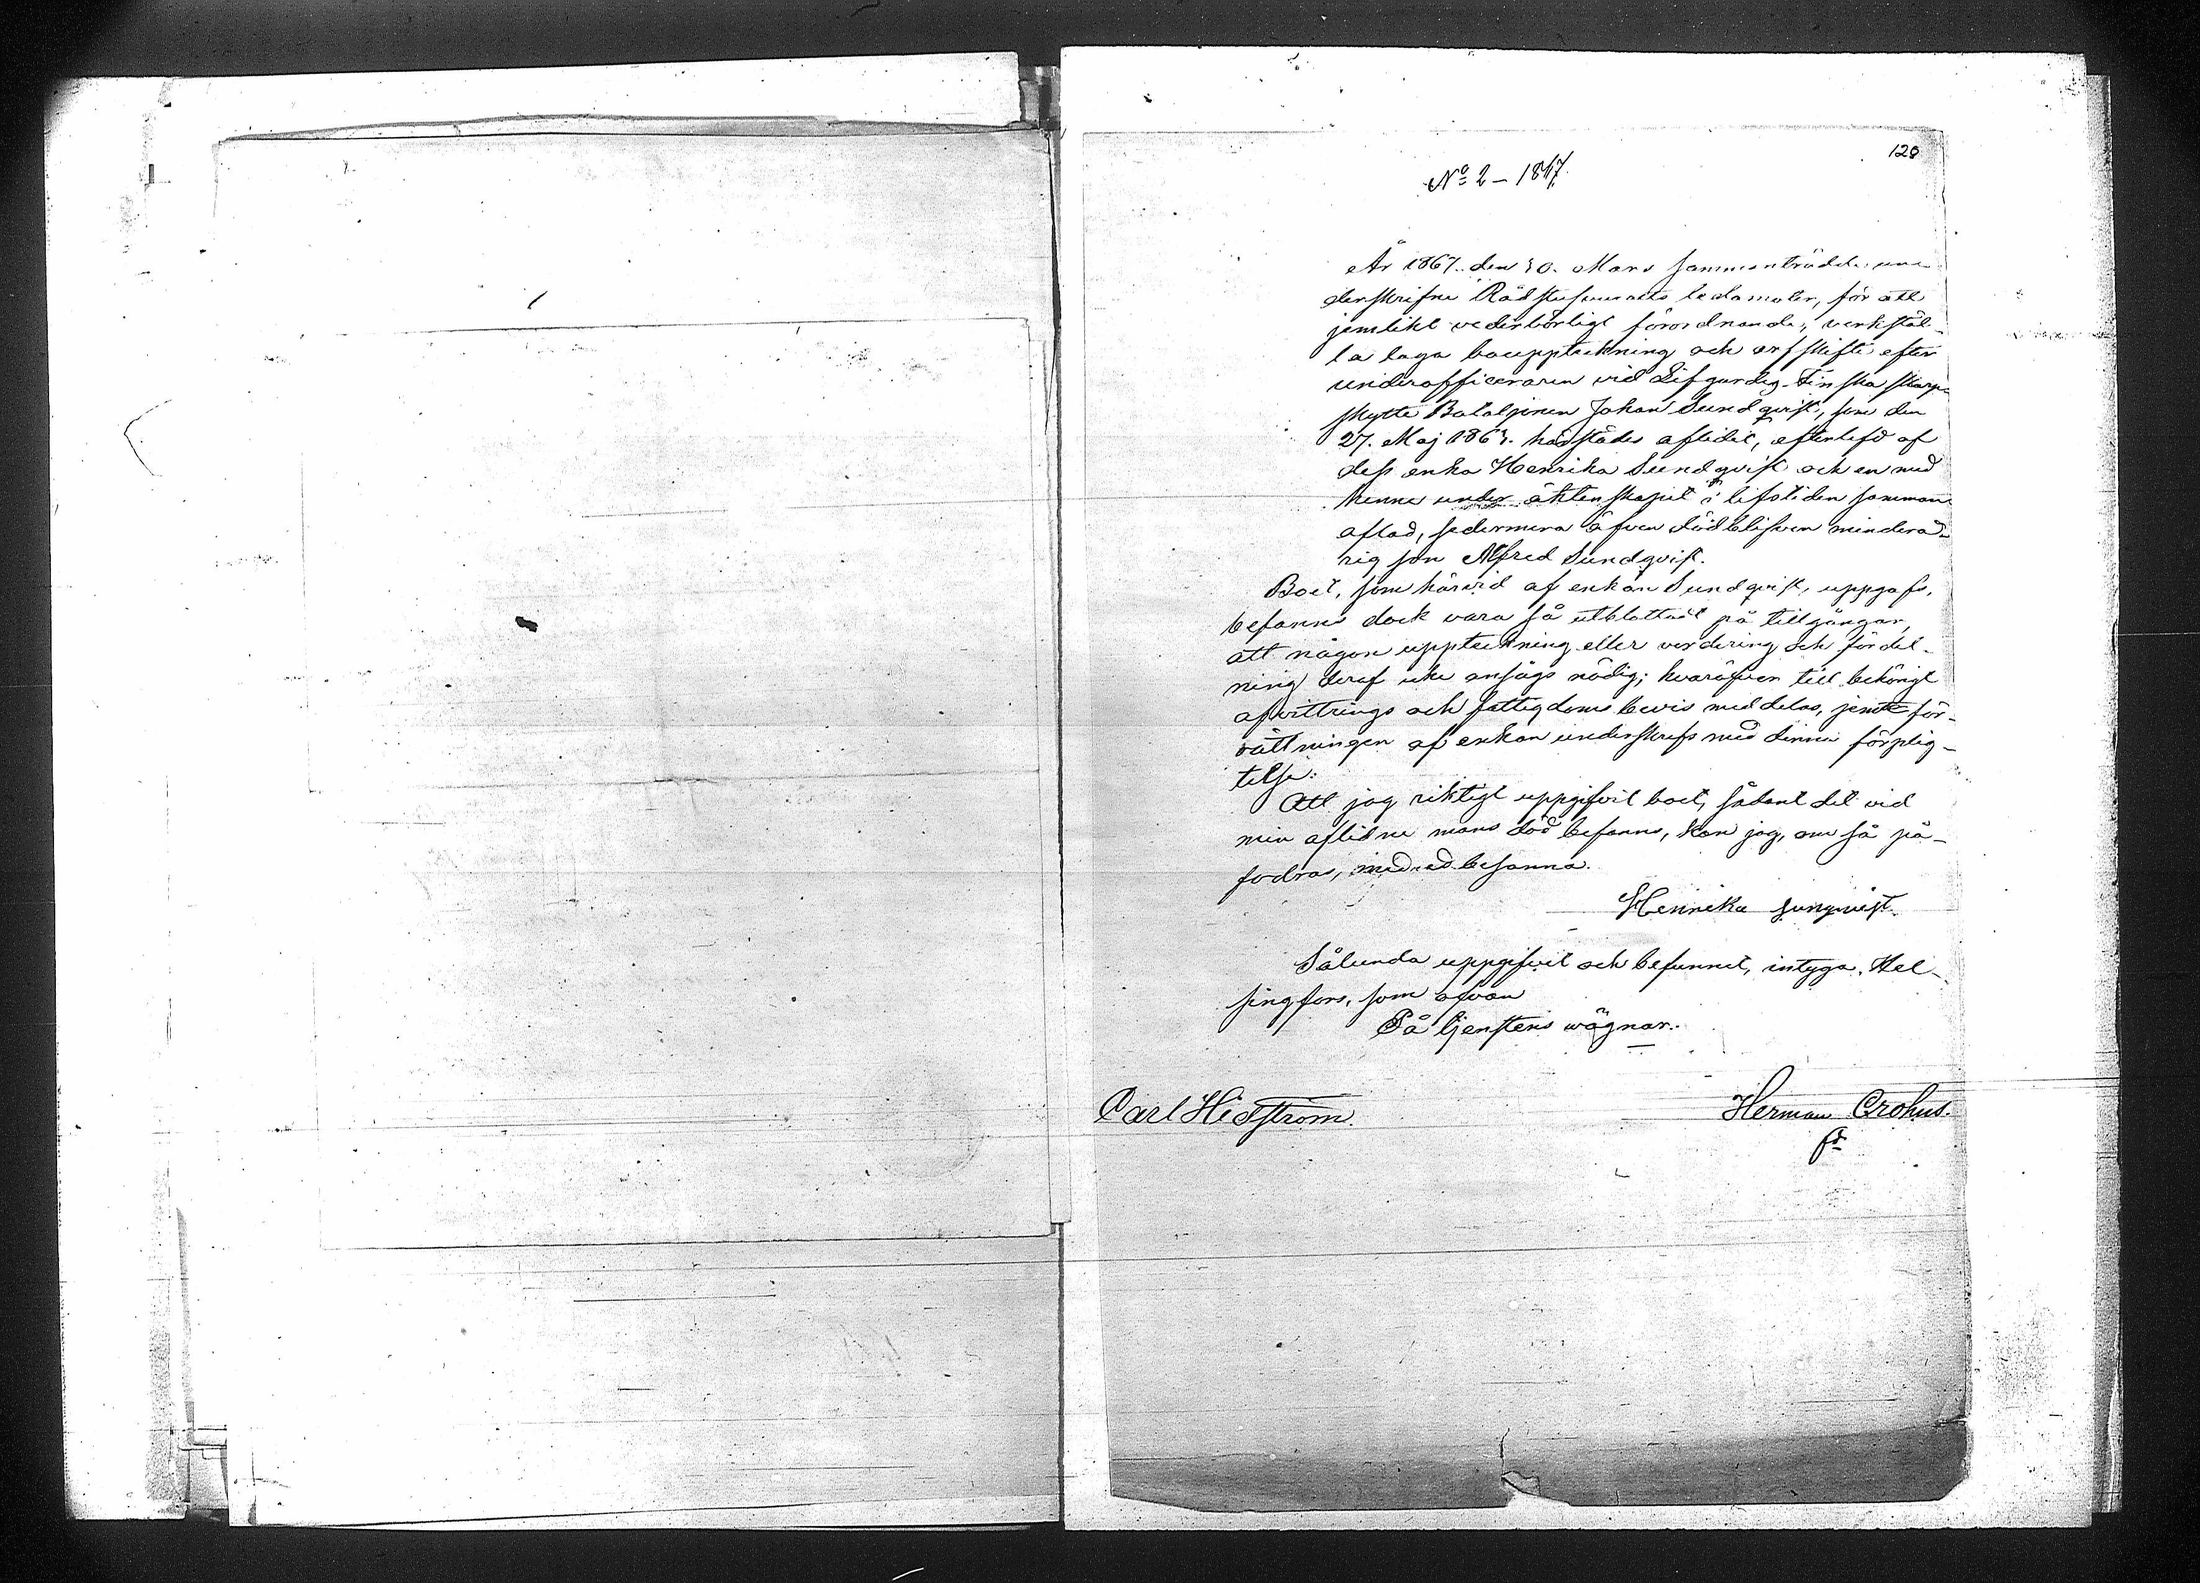 128
No 2 – 1867.
År 1867. den 30. Mars sammanträdde un-
derskrifne Rådstufvurätts ledamöter, för att
jemlikt vederbörligt förordnande, verkstäl-
la laga bouppteckning och arfskifte efter
underofficeraren vid Lifgardes Finska skarp-
skytte Bataljonen Johan Sundqvist, som den
27. Maj 1863. härstädes aflidit, efterlefd af
dess enka Henrika Sundqvist och en med
henne under äktenskapet i lifstiden samman
aflad, sedermera äfven död blifven minderå-
rig son Alfred Sundqvist.
Boet, som härvid af enkan Sundqvist, uppgafs,
befanns dock vara så utblottadt på tillgångar,
att någon uppteckning eller värdering och fördel-
ning deraf icke ansågs nödig; hvaröfver till bekomst
afvittrings och fattigdoms bevis meddelas, jemte för-
rättningen af enkan underskrefs med denna förplig-
telse:
Att jag riktigt uppgifvit boet, sådant det vid
min aflidne mans död befanns, kan jag, om så på-
fodras, med ed besanna.
Henrika Sunqvist.
Sålunda uppgifvit och befunnit, intyga. Hel-
singfors, som ofvan
På tjenstens wägnar.
Carl Hidström. Herman Crohns.